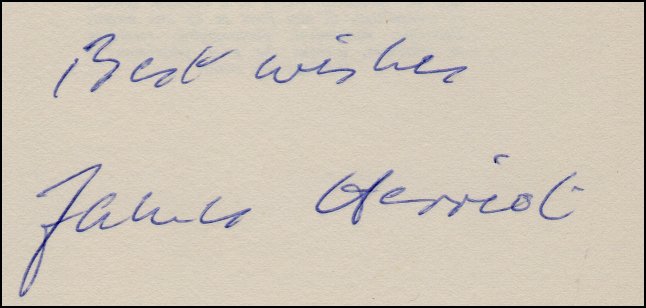 Best wishes
James Herriot